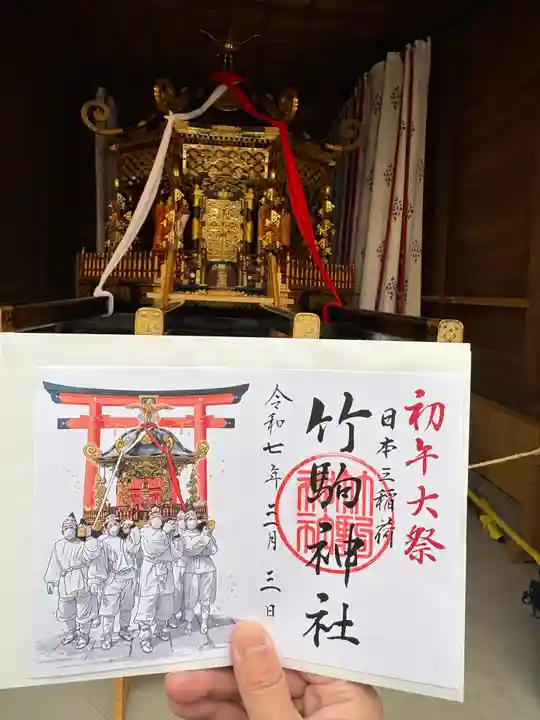 初午大祭
日本三稲荷
竹駒神社
令和七年三月三日
竹駒神社